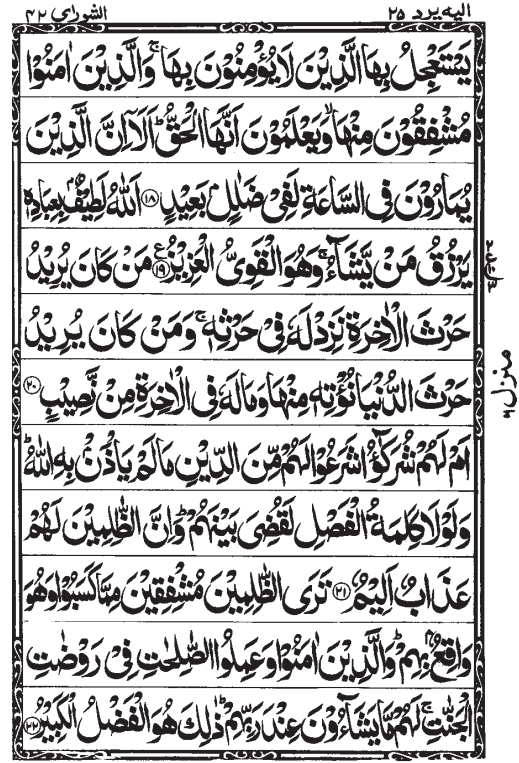 الیه یرد ۲۵
الشورٰی ۴۲
يَسْتَعْجِلُ بِهَا الَّذِيْنَ لَا يُؤْمِنُوْنَ بِهَا ۚ وَالَّذِيْنَ اٰمَنُوْا
مُشْفِقُوْنَ مِنْهَا ۙ وَيَعْلَمُوْنَ اَنَّهَا الْحَقُّ ؕ اَلَاۤ اِنَّ الَّذِيْنَ
يُمَارُوْنَ فِي السَّاعَةِ لَفِيْ ضَلٰلٍۭ بَعِيْدٍ ۱۸ اَللّٰهُ لَطِيْفٌۢ بِعِبَادِهٖ
يَرْزُقُ مَنْ يَّشَآءُ ۚ وَهُوَ الْقَوِيُّ الْعَزِيْزُ ۱۹ ع مَنْ كَانَ يُرِيْدُ
حَرْثَ الْاٰخِرَةِ نَزِدْ لَهٗ فِيْ حَرْثِهٖ ۚ وَمَنْ كَانَ يُرِيْدُ
حَرْثَ الدُّنْيَا نُؤْتِهٖ مِنْهَا وَمَا لَهٗ فِي الْاٰخِرَةِ مِنْ نَّصِيْبٍ ۲۰
اَمْ لَهُمْ شُرَكٰٓؤُا شَرَعُوْا لَهُمْ مِّنَ الدِّيْنِ مَا لَمْ يَاْذَنْۢ بِهِ اللّٰهُ ؕ
وَلَوْلَا كَلِمَةُ الْفَصْلِ لَقُضِيَ بَيْنَهُمْ ؕ وَاِنَّ الظّٰلِمِيْنَ لَهُمْ
عَذَابٌ اَلِيْمٌ ۲۱ تَرَى الظّٰلِمِيْنَ مُشْفِقِيْنَ مِمَّا كَسَبُوْا وَهُوَ
وَاقِعٌۢ بِهِمْ ؕ وَالَّذِيْنَ اٰمَنُوْا وَعَمِلُوا الصّٰلِحٰتِ فِيْ رَوْضٰتِ
الْجَنّٰتِ ۚ لَهُمْ مَّا يَشَآءُوْنَ عِنْدَ رَبِّهِمْ ؕ ذٰلِكَ هُوَ الْفَضْلُ الْكَبِيْرُ ۲۲
منزل ۶